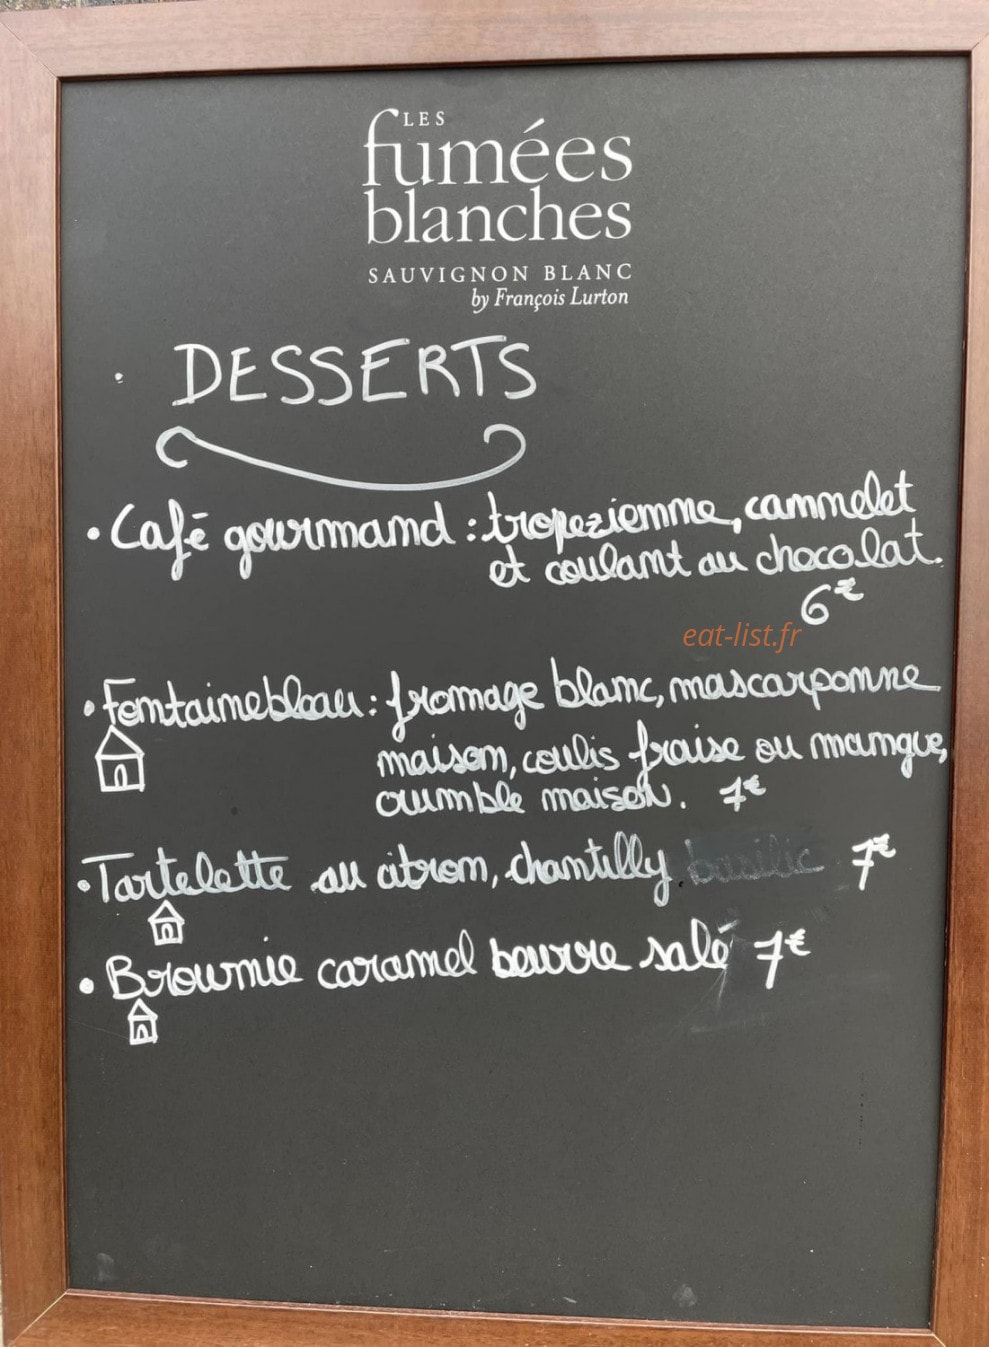 LES
fumées
blanches
SAUVIGNON BLANC
by François Lurton
DESSERTS
• Café gourmand : tropezienne, cannelet
et coulant au chocolat.
6€
eat-list.fr
• Fontainebleau : fromage blanc, mascarponne
maison, coulis fraise ou mangue,
crumble maison. 7€
• Tartelette au citron, chantilly basilic 7€
• Brownie caramel beurre salé 7€